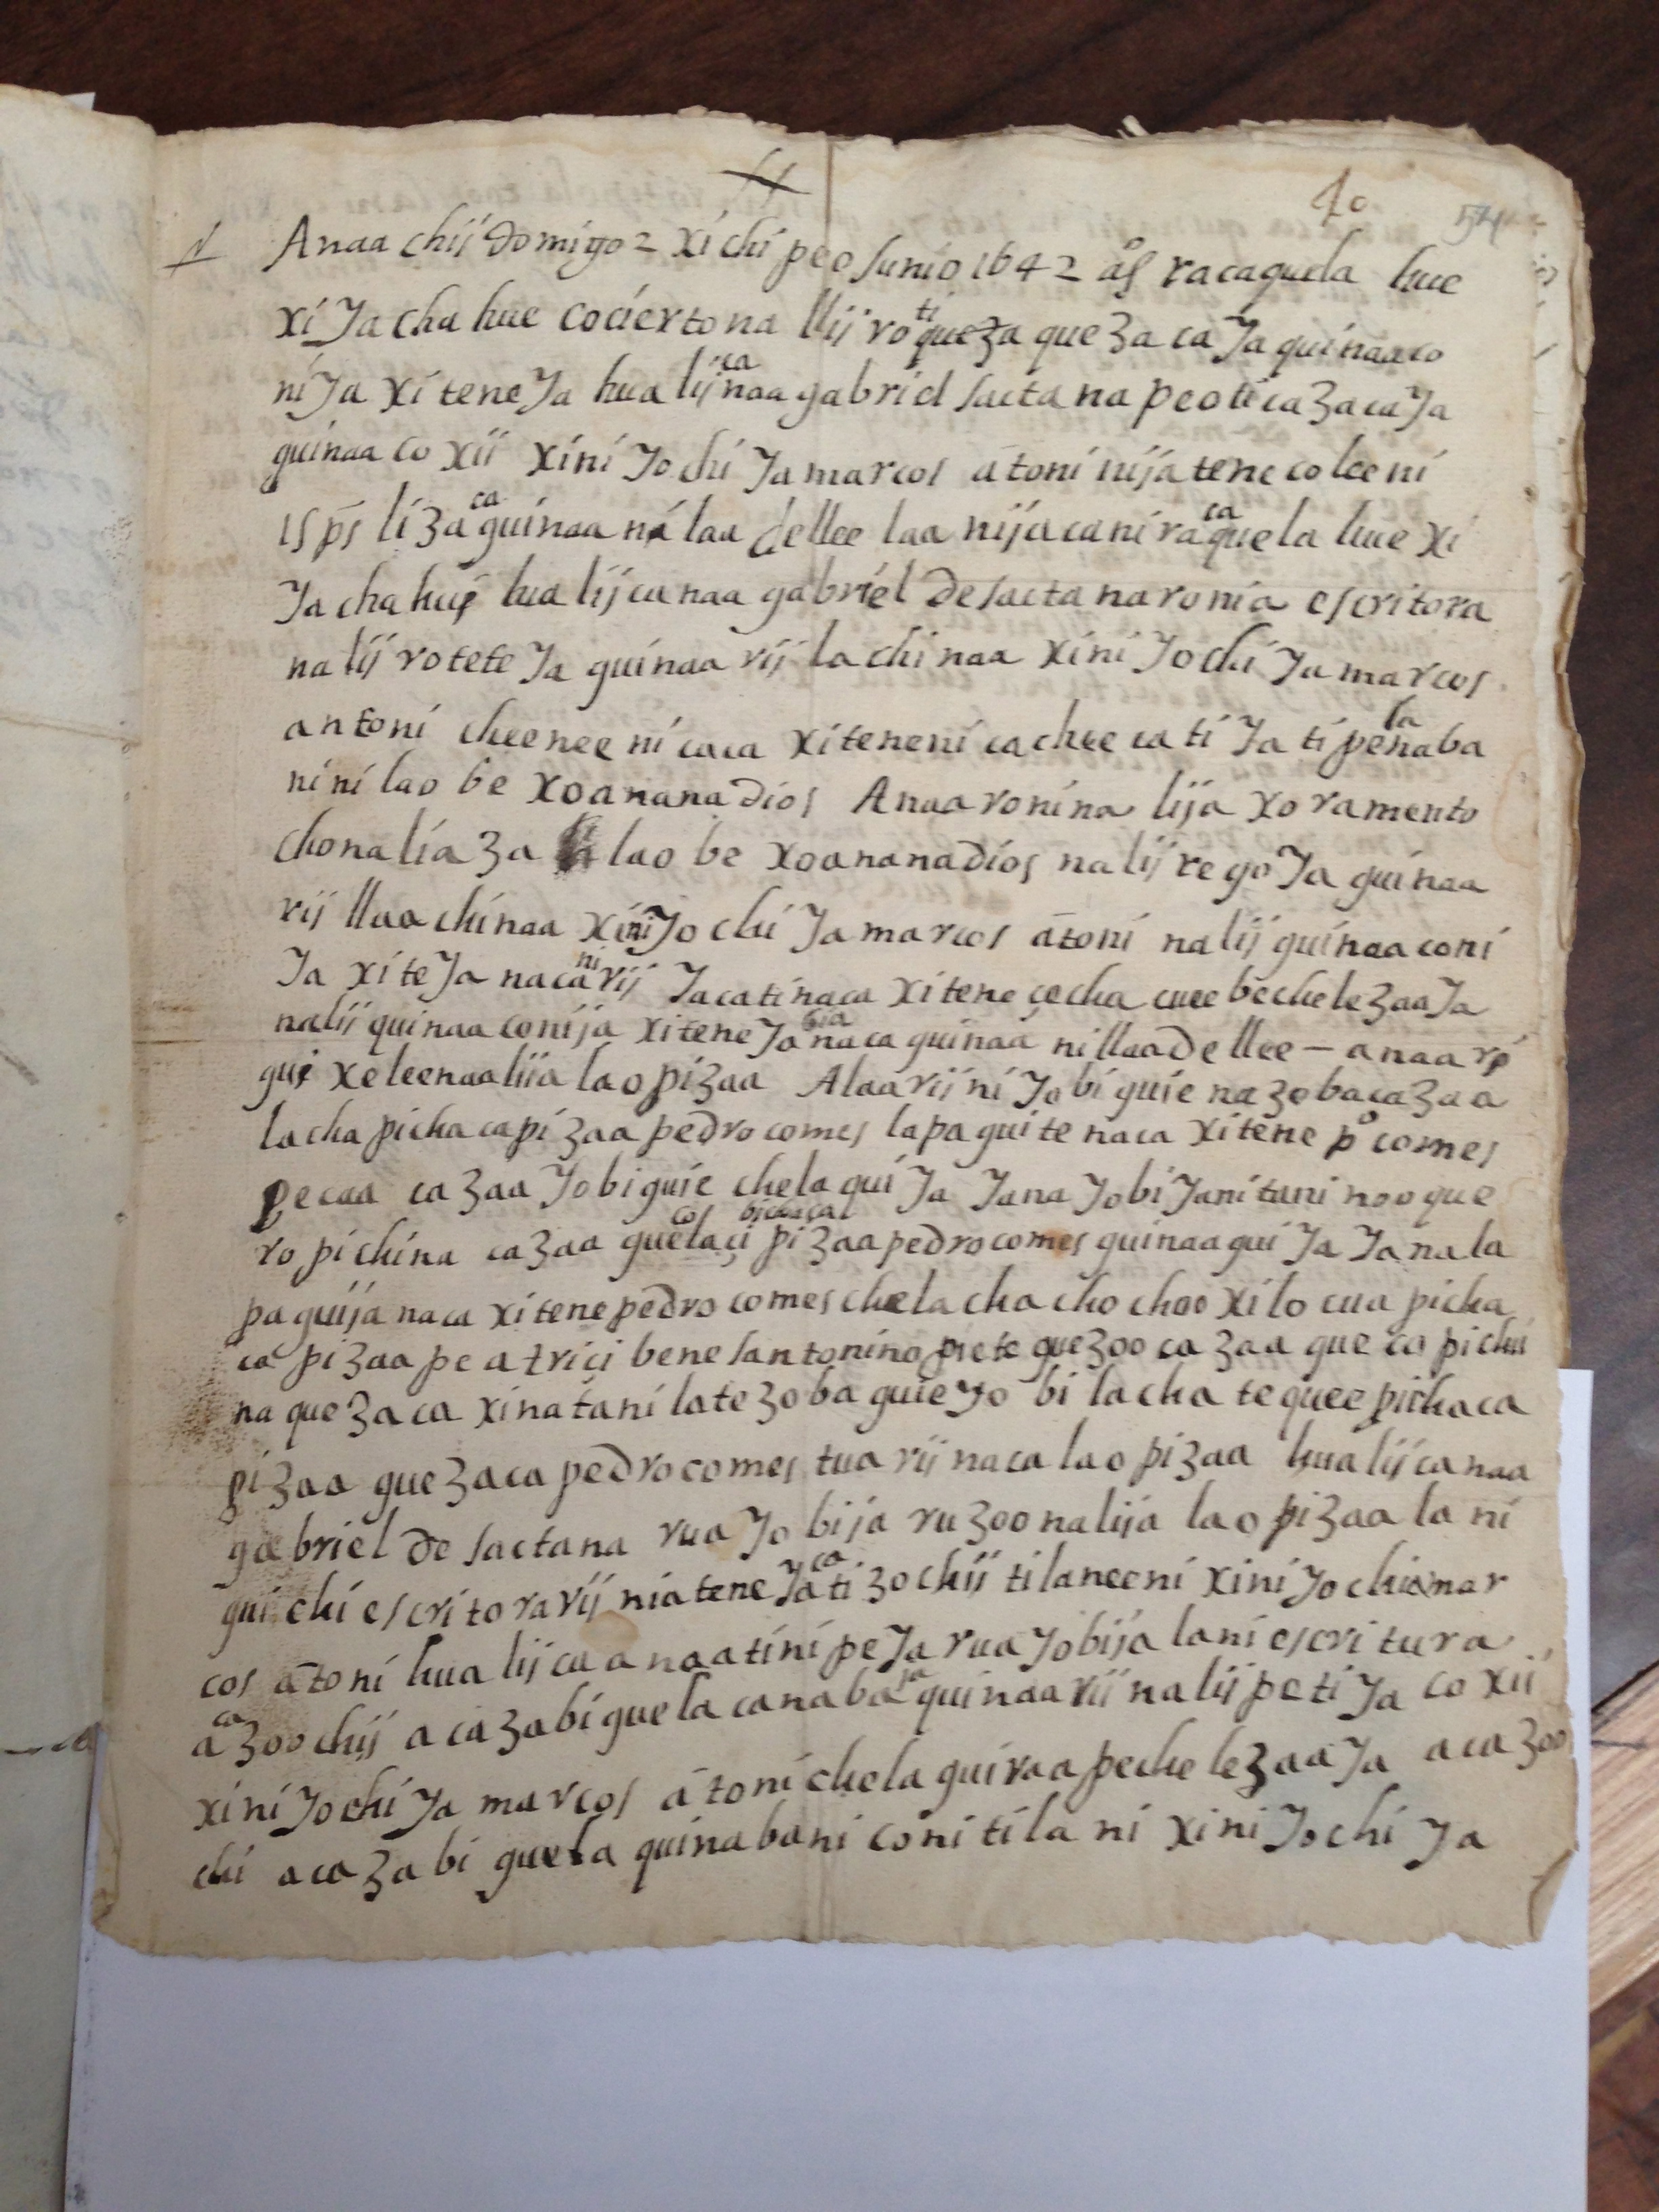 Anaa chij domigo 2 xi chi peo Junio 1642 as racaquela hue
xi Ja cha hue cocierto na llij ro ti queza que zaca Ja quinaa co
ni Ja xi tene Ja hua lij ca naa gabriel sacta na peo ti ca zaca Ja
guinaa co xii xini Jo chi Ja marcos ātoni nija tene colee ni
is ps li za ca guinaa ná laa dellee laa nija cani ra ca quela hue xi
Ja cha hue hua lij ca naa gabriel de sacta na ronia escritora
na lij rotete Ja guinaa rij lachi naa xini Jo chi Ja marcos
antoni cheenee ni caca xiteneni ca chee ca ti Ja ti pe la naba
nini lao be xoanana dios Anaa ronina lija xoramento
chona lia za lao be xoanana dios na lij rego Ja guinaa
rij llaa chi naa xini Jo chi Ja marcos ātoni na lij guinaa coni
Ja xi te Ja naca ni rij Jaca ti naca xitene çecha cuee bechelezaa Ja
nalij quinaa conija xitene Ja bia naca guinaa ni llaa dellee — anaa rò
gui xeleenaa liia lao pizaa Alaa rij ni Jobi guie na zobaca zaa
lacha pichaca pizaa pedro comes lapa guite naca xitene po comes
pecaa ca zaa Jobi guie chela qui Ja Jana Jobi Jani tani noo que
ro pichina ca zaa guelaçi cos bichaçal pizaa pedro comes guinaa gui Ja Jana la
pa guija naca xitene pedro comes chela cha cho choo xilo cua picha
ca pizaa pe atriçi bene santonino piete que zoo ca zaa que ca pichi
na que zaca xinatani late zoba guie Jo bi lacha te quee pichaca
pizaa que zaca pedro comes tua rij naca lao pizaa hua lij ca naa
gabriel de sactana rua Jo bija ru zoo na lija lao pizaa la ni
qui chi escritora rij nia tene Ja ca ti zo chij tilaneeni xini Jo chi mar
cos ātoni hua lij ca anaa tini pe Ja rua Jobija lani escritura
a ca zoo chij a ca zabi guela canaba Ja quinaa rij na lij pe ti Ja co xii
xini Jo chi Ja marcos ātoni chela guiraa pechelezaa Ja aca zoo
chi aca zabi guela quinabani coni ti la ni xini Jo chi Ja